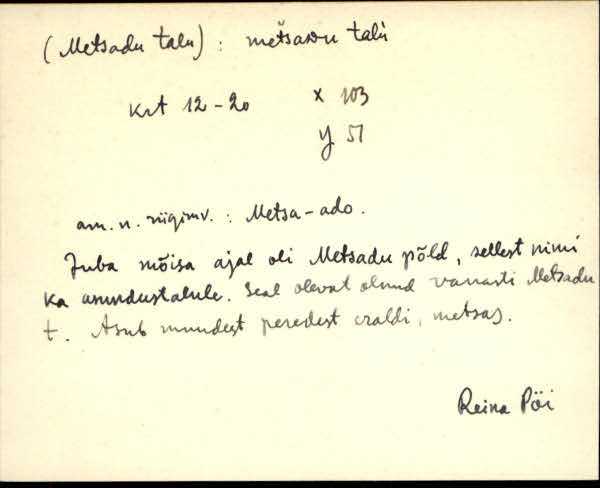 (Metsadu talu) : metsaᴅu talu
krt 12-20 x 103
y 51
am. n. riigimv. : Metsa-ado.
Juba mõisa ajal oli Metsadu põld, sellest nimi
ka asundustalule. Seal olevat olnud vanasti Metsadu
t. Asub muudest peredest eraldi, metsas.
Reina Pöi